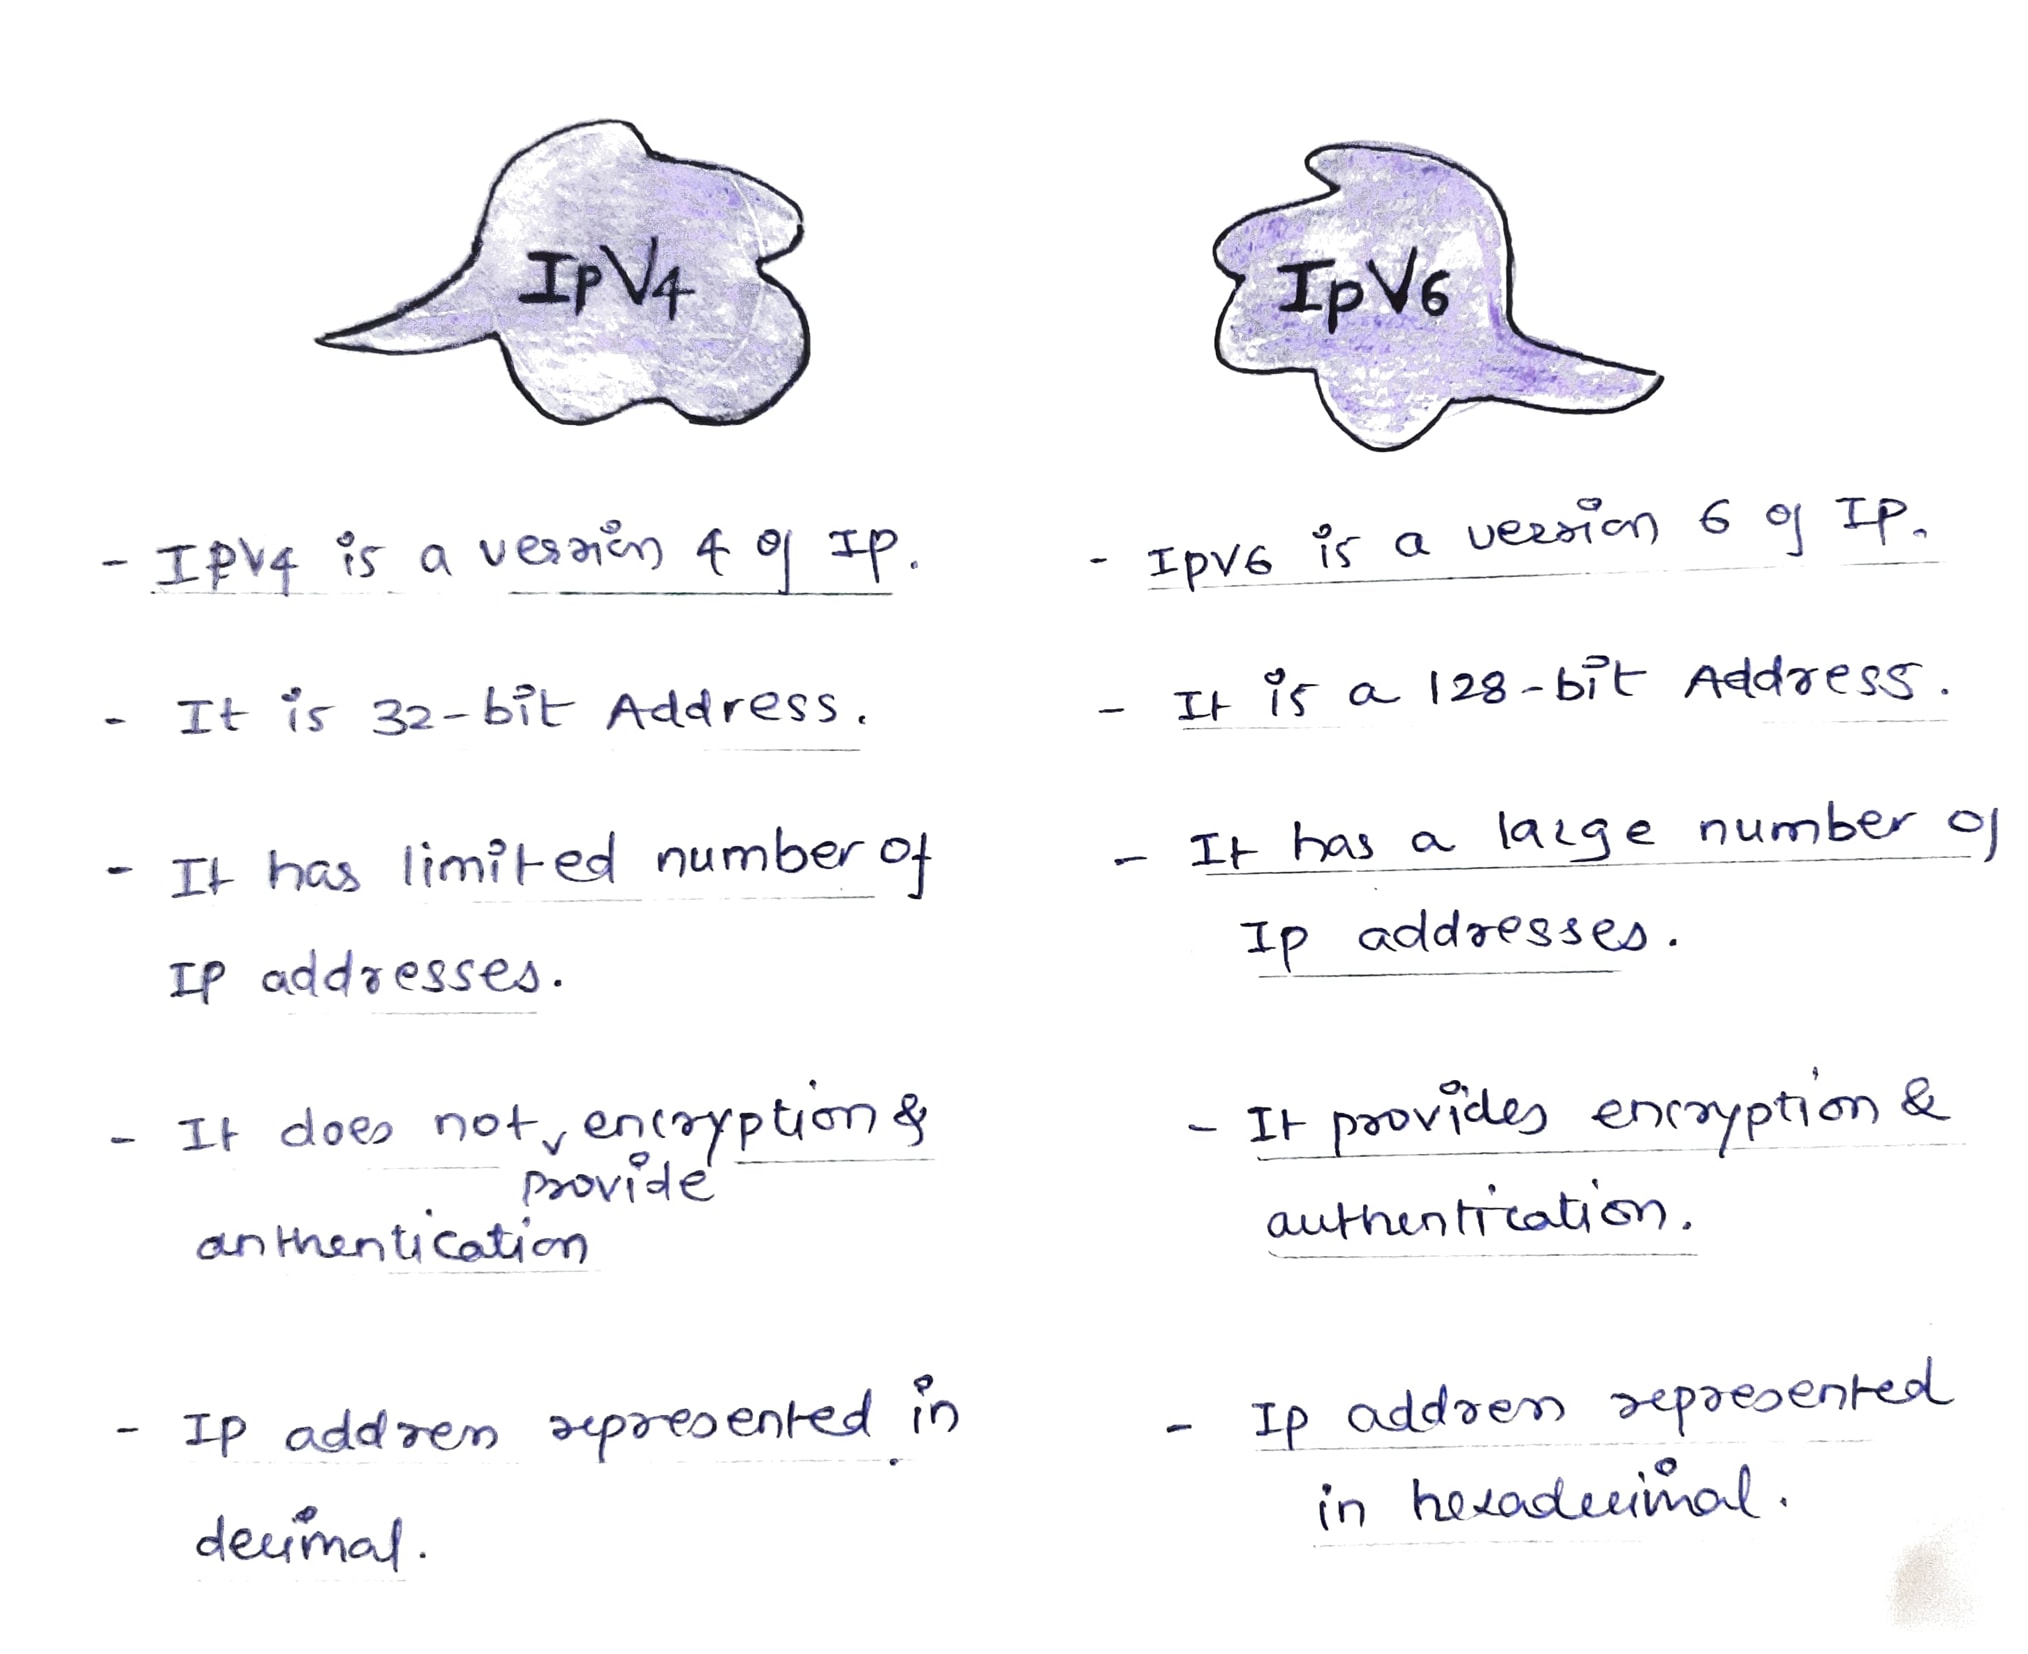 IpV4
- IPV4 is a version 4 of IP.
- It is 32-bit Address.
- It has limited number of
IP addresses.
- It does not encryption &
provide
anthentication
- Ip address represented in
decimal.
IpV6
- IpV6 is a version 6 of IP.
- It is a 128-bit Address.
- It has a large number of
Ip addresses.
- It provides encryption &
authentication.
- Ip address represented
in hexadecimal.